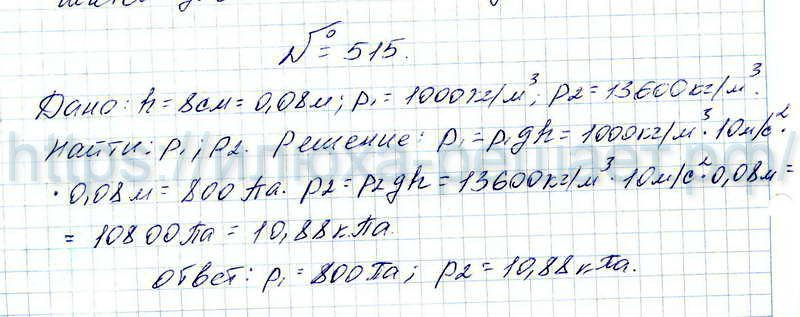 № 515.
Дано: h = 8см = 0,08м; ρ₁ = 1000кг/м³; ρ2 = 13600кг/м³.
Найти: p₁; p2. Решение: p₁ = ρ₁gh = 1000кг/м³ · 10м/с² ·
· 0,08м = 800 Па. p2 = ρ2gh = 13600кг/м³ · 10м/с² · 0,08м =
= 10800Па = 10,88кПа.
ответ: p₁ = 800Па; p2 = 10,88кПа.